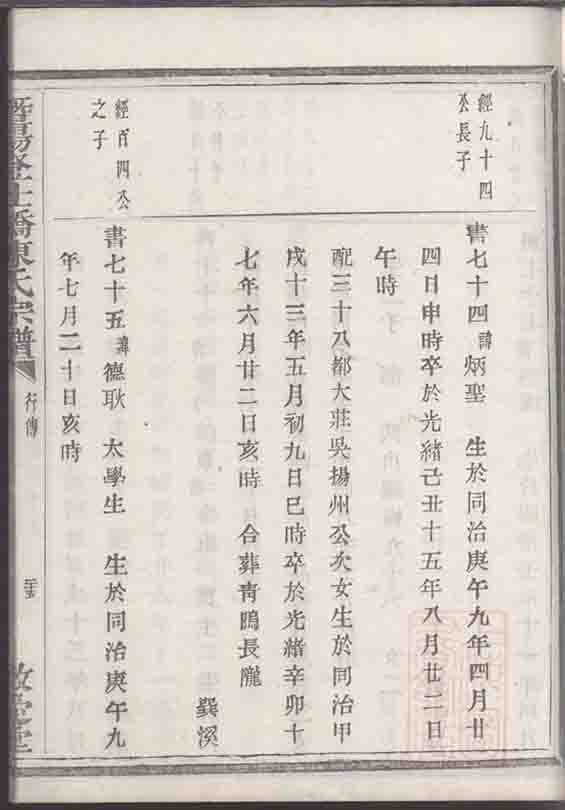 經九十四
公長子
書七十四諱炳聖 生於同治庚午九年四月廿
四日申時卒於光緒己丑十五年八月廿二日
午時
配三十八都大莊吳揚州公次女生於同治甲
戌十三年五月初九日巳時卒於光緒辛卯十
七年六月廿二日亥時 合葬青鴫長隴
巽溟
經百四公
之子
書七十五諱德耿 太學生 生於同治庚午九
年七月二十日亥時
暨陽金士橋陳氏宗譜
行傳